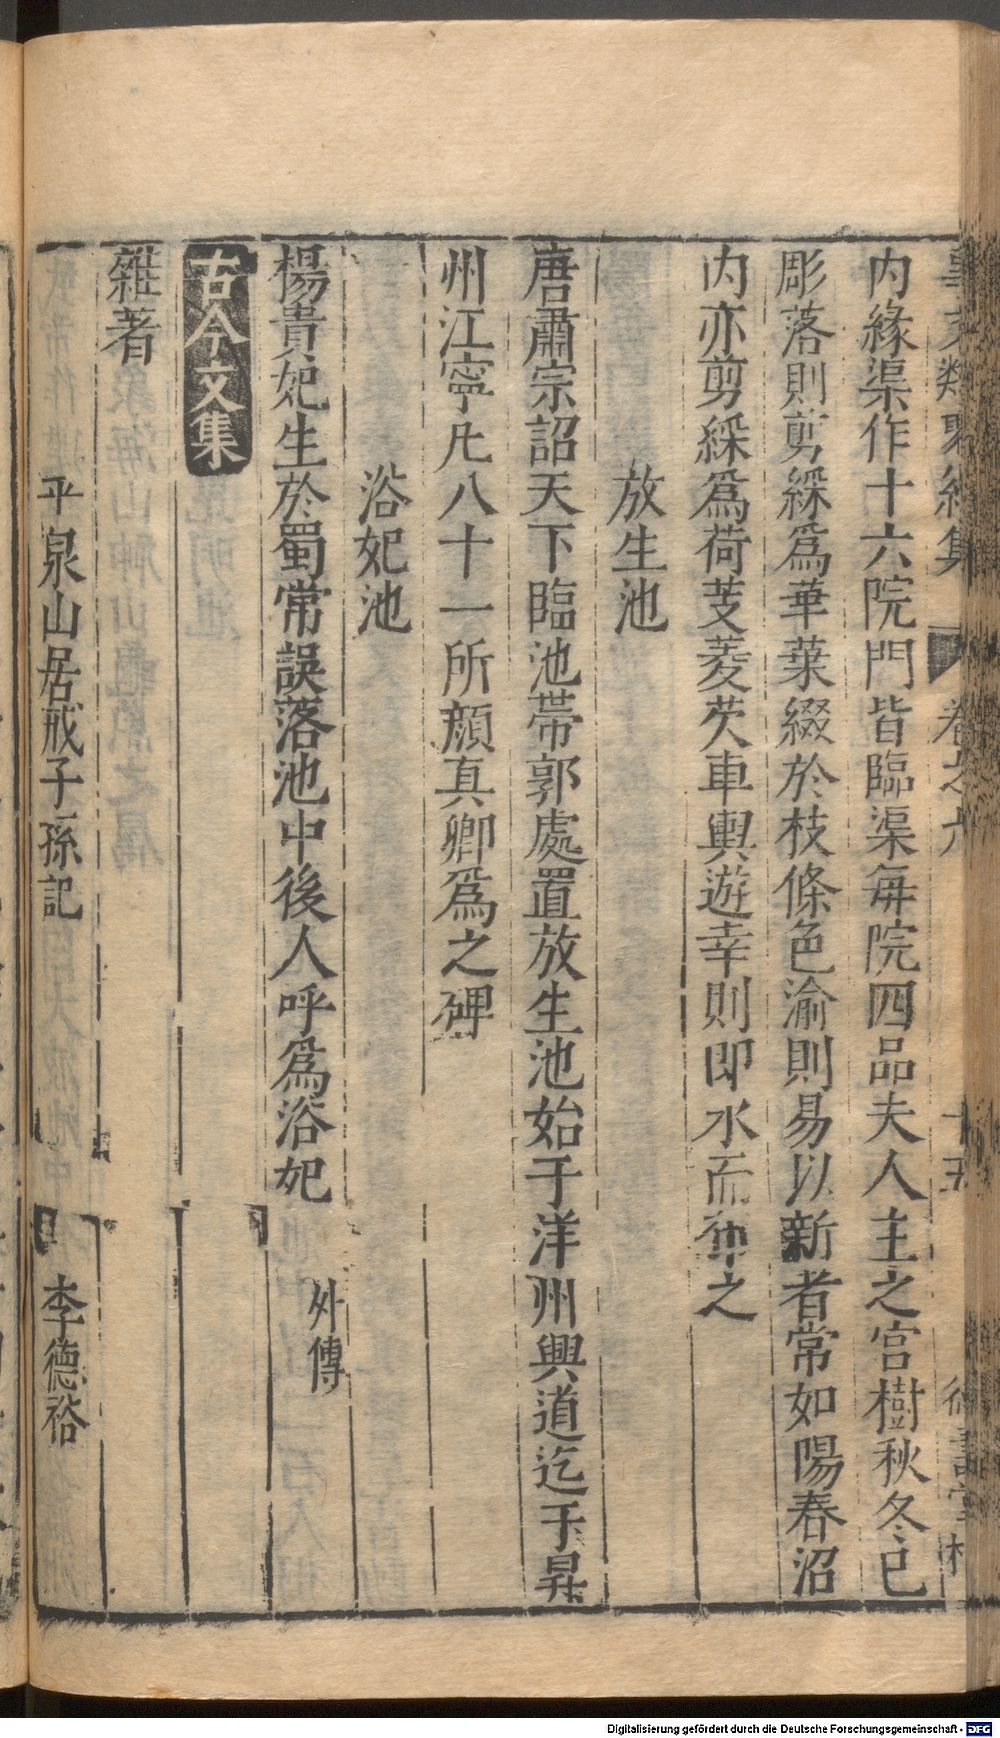 事文類聚續集 卷之六 十五 德壽堂梓
内緣渠作十六院門皆臨渠每院四品夫人主之宮樹秋冬已
彫落則剪綵爲華葉綴於枝條色渝則易以新者常如陽春沼
内亦剪綵爲荷芰菱芡車輿遊幸則即水而布之
放生池
唐肅宗詔天下臨池帶郭處置放生池始于洋州興道迄于昇
州江寧凡八十一所顔真卿爲之碑
浴妃池
楊貴妃生於蜀常誤落池中後人呼爲浴妃 外傳
古今文集
雜著
平泉山居戒子孫記 李德裕
Digitalisierung gefördert durch die Deutsche Forschungsgemeinschaft - DFG